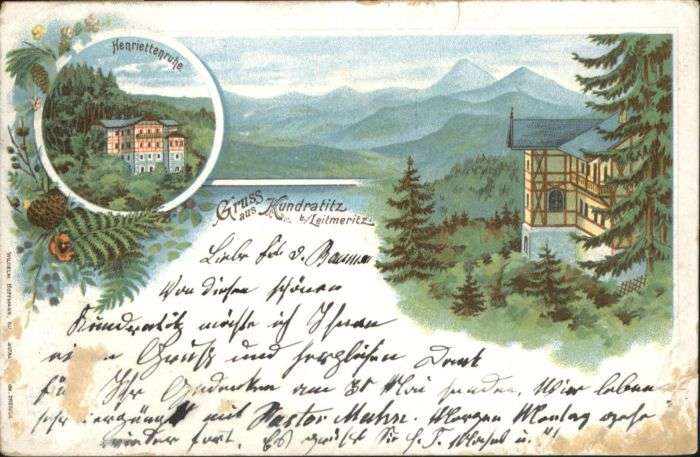 Henriettenruhe
Gruss
aus Kundratitz
b/Leitmeritz.
Liebe Frl. v. Baumer
Von diesem schönen
Kundratitz möchte ich Ihnen
einen Gruss und herzlichen Dank
für Ihr Gedenken am 30 Mai senden. Wir leben
sehr vergnügt mit Pastor Morgen Montag gehe
wieder fort. Es grüßt Sie h. T. u.